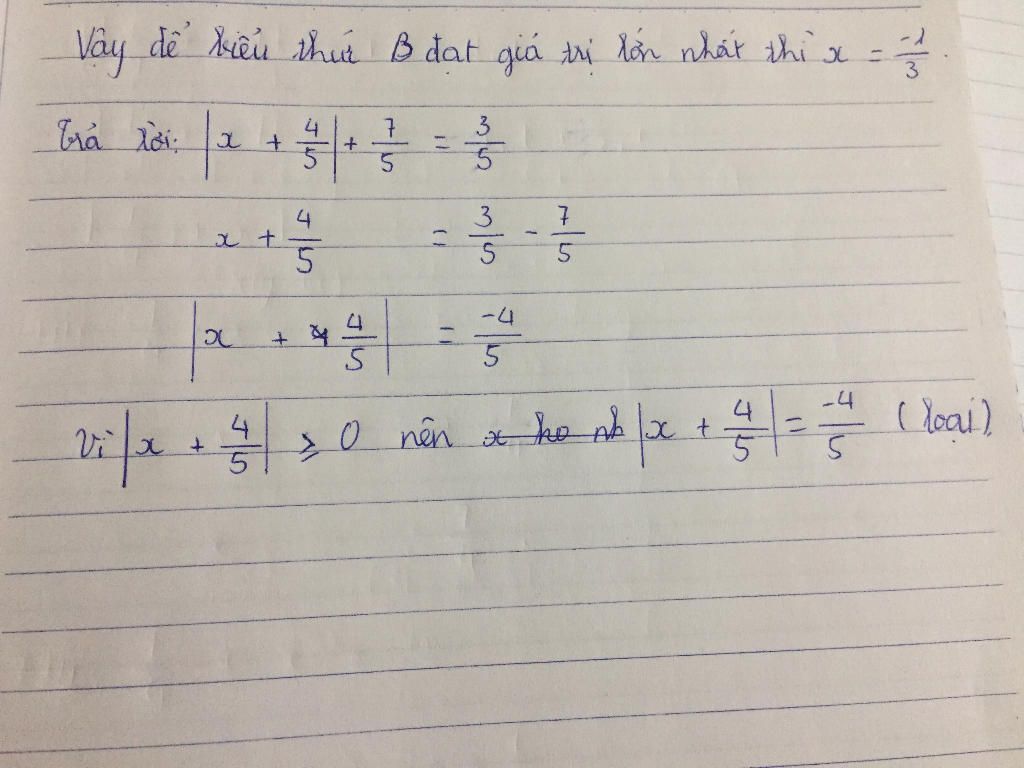 Vậy để biểu thức B đạt giá trị lớn nhất thì x = -1/3.
Trả lời: |x + 4/5| + 7/5 = 3/5
x + 4/5 = 3/5 - 7/5
|x + 4/5| = -4/5
Vì |x + 4/5| ≥ 0 nên x ko nh |x + 4/5| = -4/5 (loại).